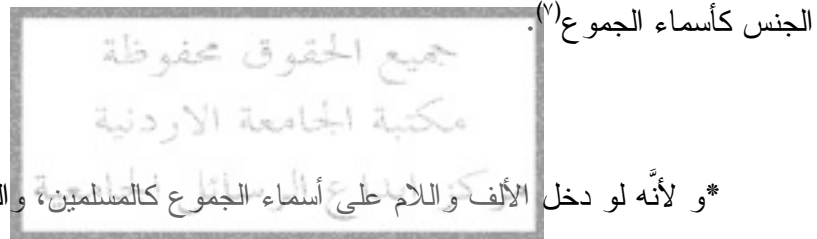 الجنس كأسماء الجموع(٧).
جميع الحقوق محفوظة
مكتبة الجامعة الاردنية
مركز ايداع الرسائل الجامعية
*و لأنَّه لو دخل الألف واللام على أسماء الجموع كالمسلمين،